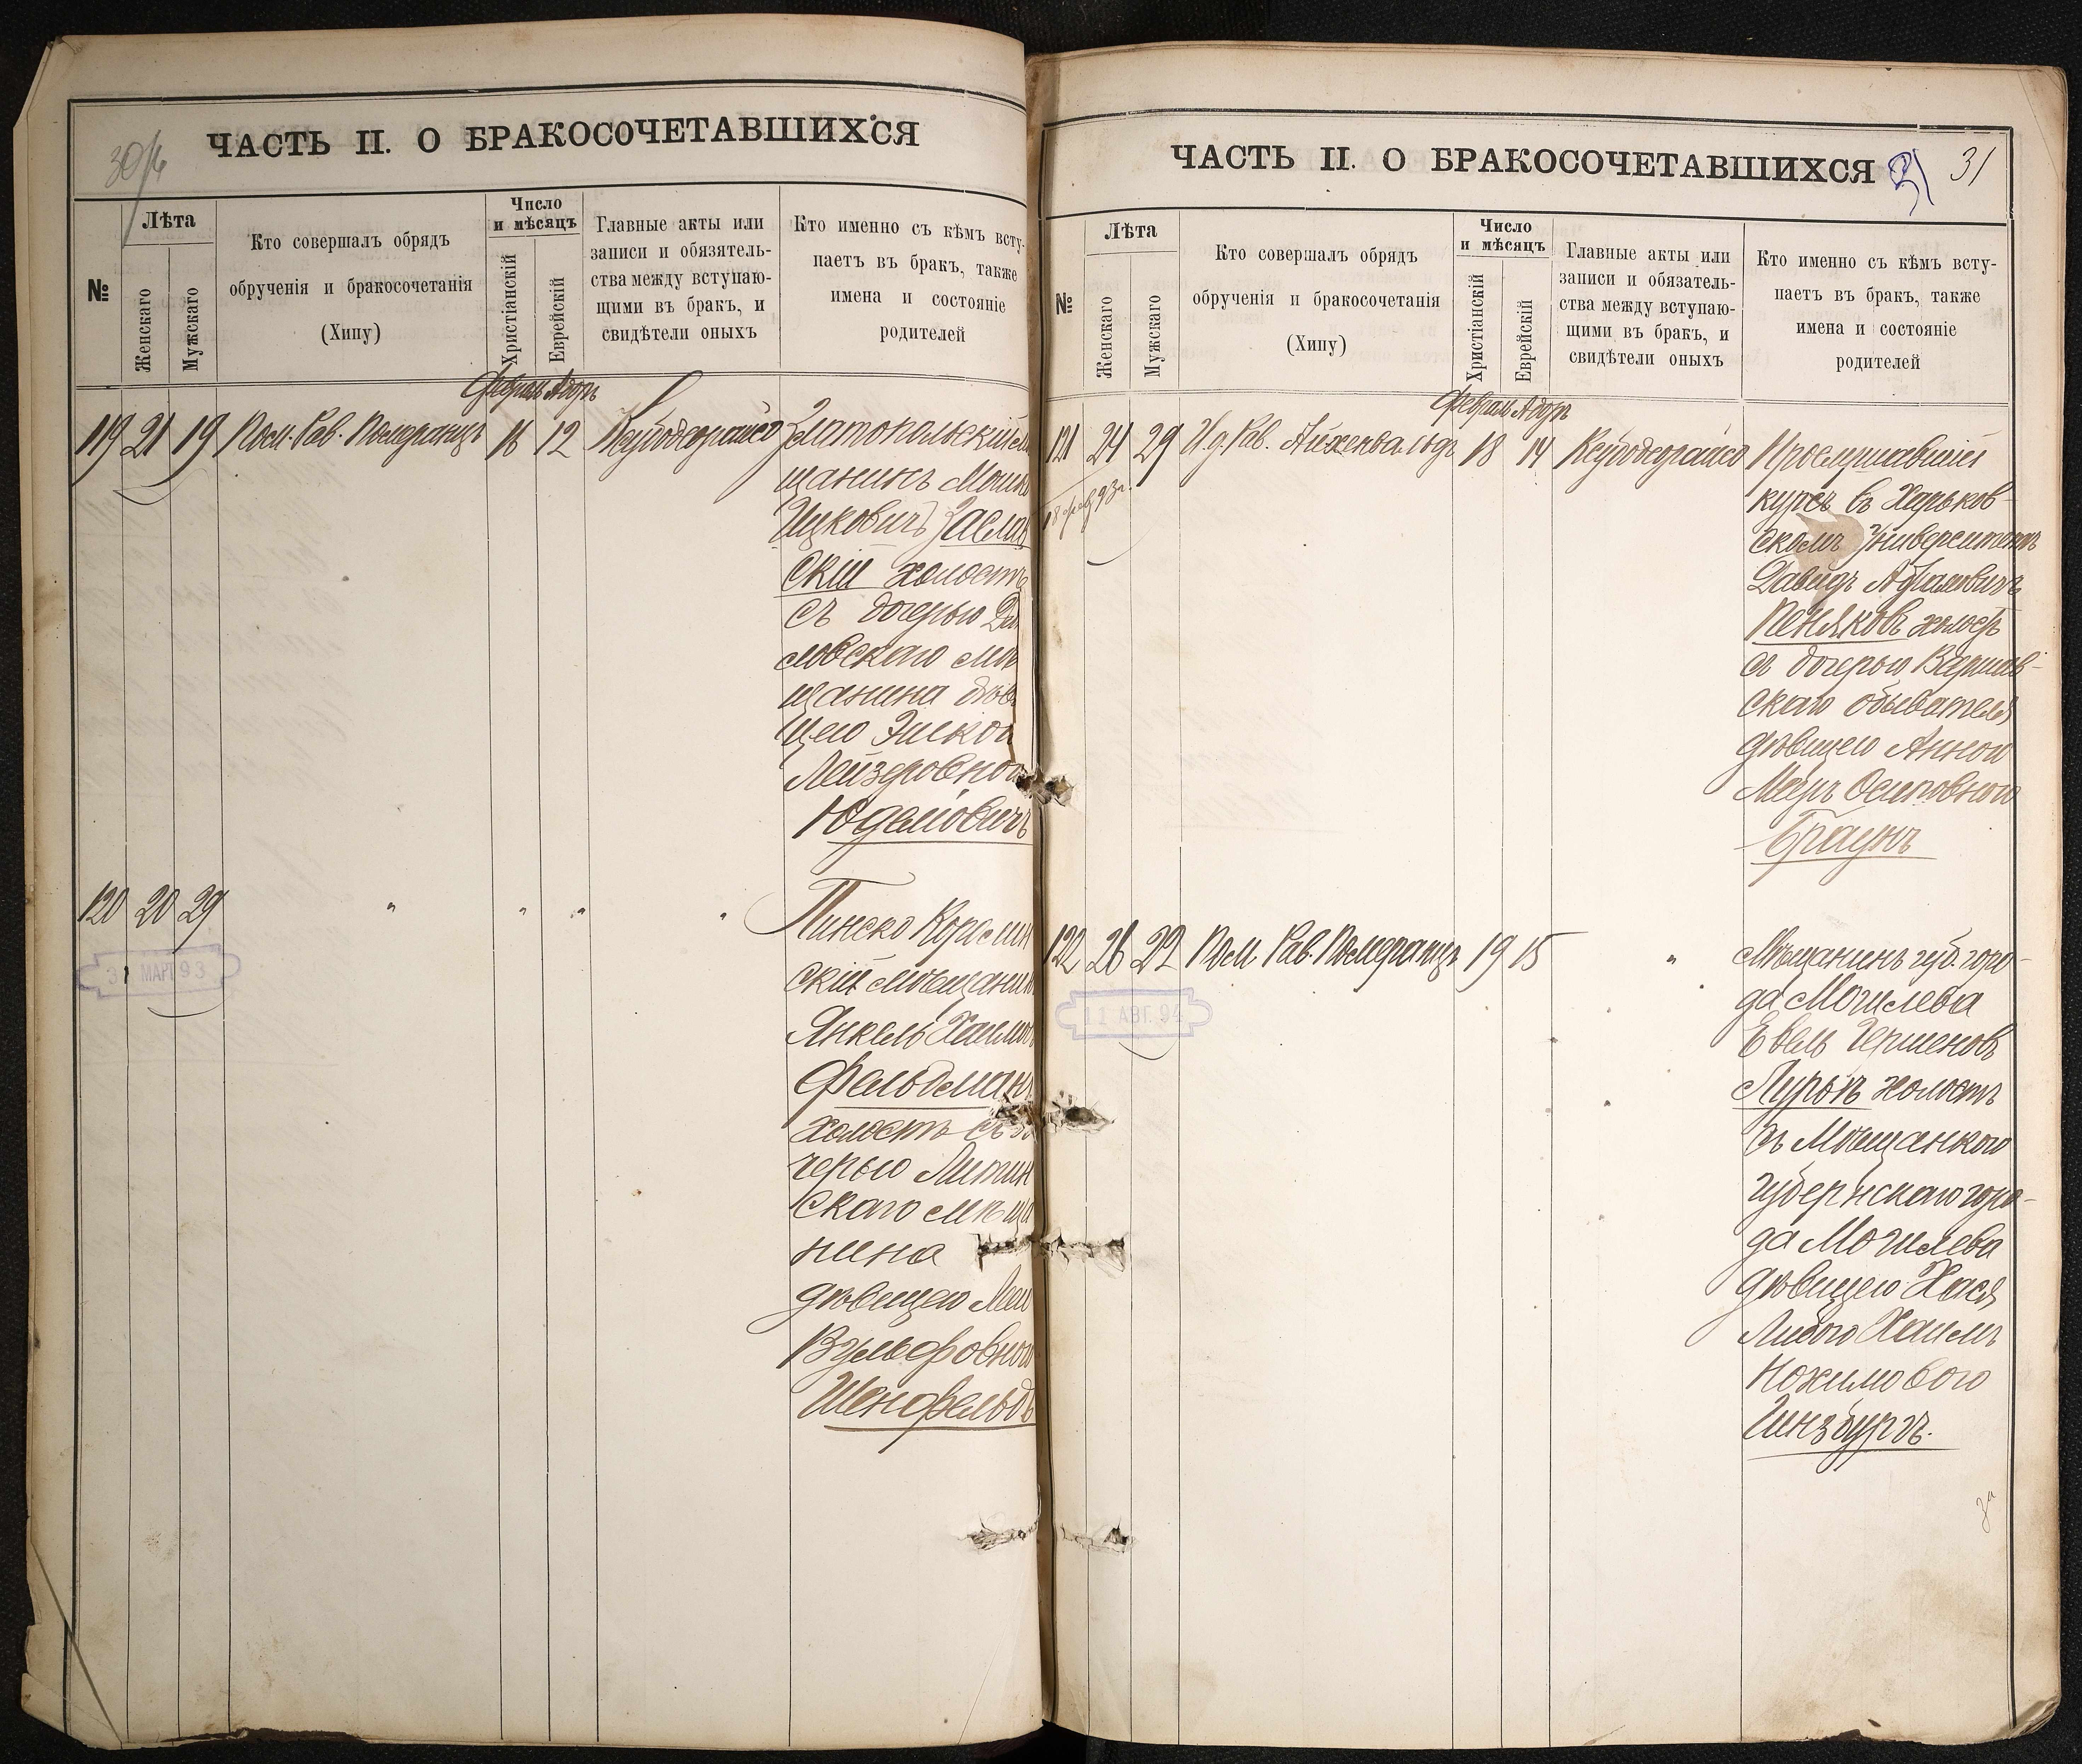 ЧАСТЬ II. О БРАКОСОЧЕТАВШИХСЯ
№
Лѣта
Женскаго
Мужскаго
Кто совершалъ обрядъ
обрученія и бракосочетанія
(Хипу)
Число
и мѣсяцъ
Христіанскій
Еврейскій
Главные акты или
записи и обязатель-
ства между вступаю-
щими въ бракъ, и
свидѣтели оныхъ
Кто именно съ кѣмъ всту-
паетъ въ бракъ, также
имена и состояніе
родителей
Адоръ
119 21 19 Пом. Рав. Померанцъ 12 Златопольскій
щанинъ
Ицковичъ Заслав
скій холостъ
съ дочерью
ловскаго
щанина дѣв
цею
Лейзеровной
Юдейовичъ
120 20 29 " " " "
Пинско
скій мѣщанинъ
Янкель
Фельдманъ
холостъ съ до
черью Литин
скаго мѣща
нина
дѣвицею
Вульфовною
Шенфельдъ
31 МАРТ 93
ЧАСТЬ II. О БРАКОСОЧЕТАВШИХСЯ
31 31
№
Лѣта
Женскаго
Мужскаго
Кто совершалъ обрядъ
обрученія и бракосочетанія
(Хипу)
Число
и мѣсяцъ
Христіанскій
Еврейскій
Главные акты или
записи и обязатель-
ства между вступаю-
щими въ бракъ, и
свидѣтели оныхъ
Кто именно съ кѣмъ всту-
паетъ въ бракъ, также
имена и состояніе
родителей
Адоръ
121 24 29 И.д. Рав. Айхенвальдъ 18 14 Прослушавшій
курсъ въ Харьков-
скомъ Университетѣ
Давидъ Абрамовичъ
Пеняковъ холостъ
съ дочерью Варшав-
скаго обывателя
дѣвицею Анною
Осиповною
Браунъ
122 26 22 Пом. Рав. Померанцъ 19 15 " Мѣщанинъ губ. горо-
да Могилева
Евель
Лурье холостъ
съ Мѣщанкою
губернскаго горо-
да Могилева
дѣвицею Хася
Либою Хаимъ
Нохимовою
Гинзбургъ.
11 АВГ. 94